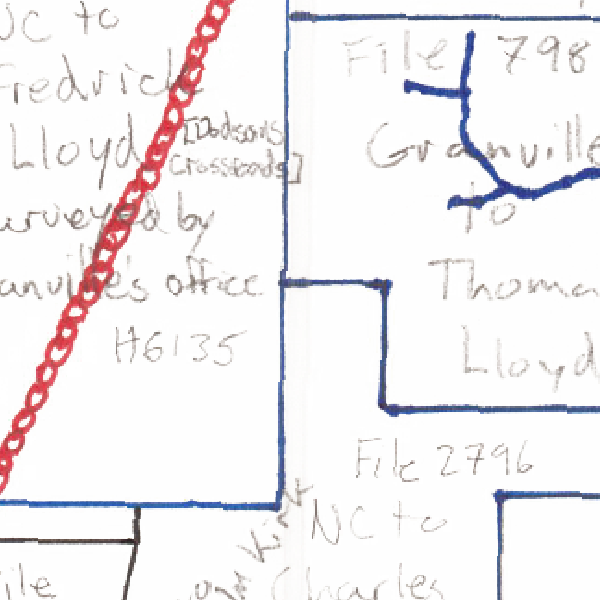 NC to
Fredrick
Lloyd
[Dodsons
Crossroads]
urveyed by
anville's office
H6135
File 798
Granville
to
Thoma
Lloyd
File 2796
NC to
Charles
King
ile